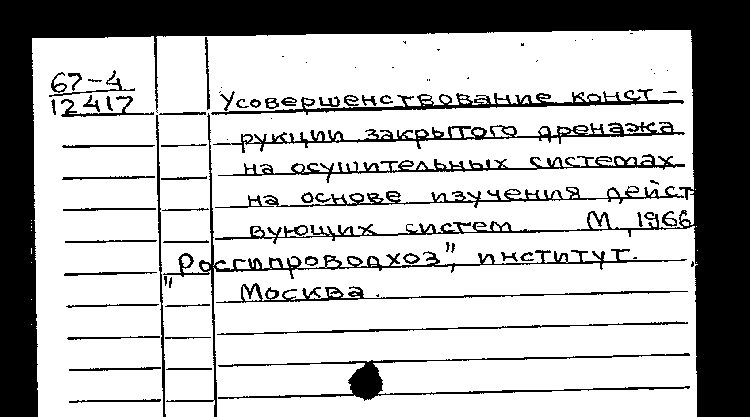 67-4
12417
Усовершенствование конст-
рукции закрытого дренажа
на осушительных системах
на основе изучения дейст
вующих систем. М, 1966
"Росгипроводхоз", институт.
Москва.